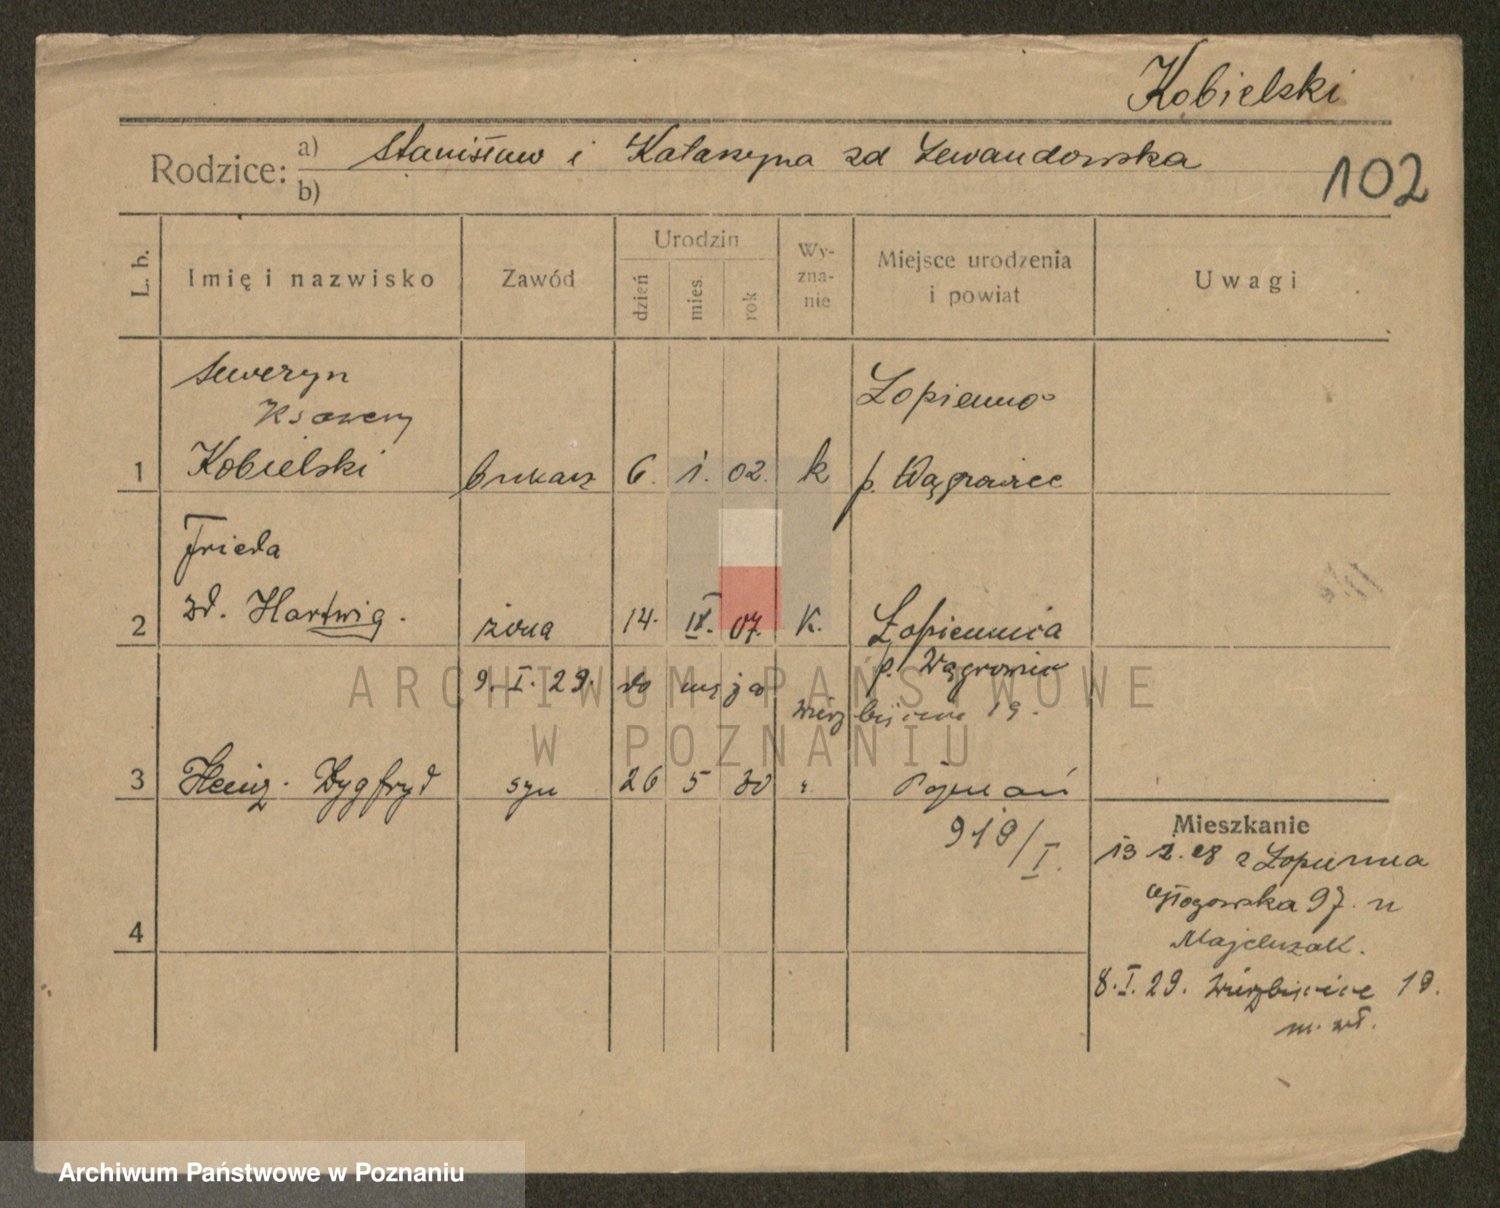 Kobielski
Rodzice: a) Stanisław i Katarzyna zd Lewandowska
b)
102
L. b.
Imię i nazwisko
Zawód
Urodzin
dzień
mies.
rok
Wy-
zna-
nie
Miejsce urodzenia
i powiat
Uwagi
Seweryn
Ksawery
Łopienno
1 Kobielski brukarz 6. 1. 02. k p. Wągrowiec
Frieda
2 zd. Hartwig. żona 14. 07. K. Łopiennica
9. I. 29. do męża p. Wągrowiec
Wierzbięcice 19.
3 Heinz. Zygfryd syn 26 5 30 " Poznań
919/I.
4
Mieszkanie
13 2. 28 z Łopienna
Głogowska 97. u
Majchrzak.
8. I. 29. Wierzbięcice 19.
ARCHIWUM PAŃSTWOWE
W POZNANIU
Archiwum Państwowe w Poznaniu